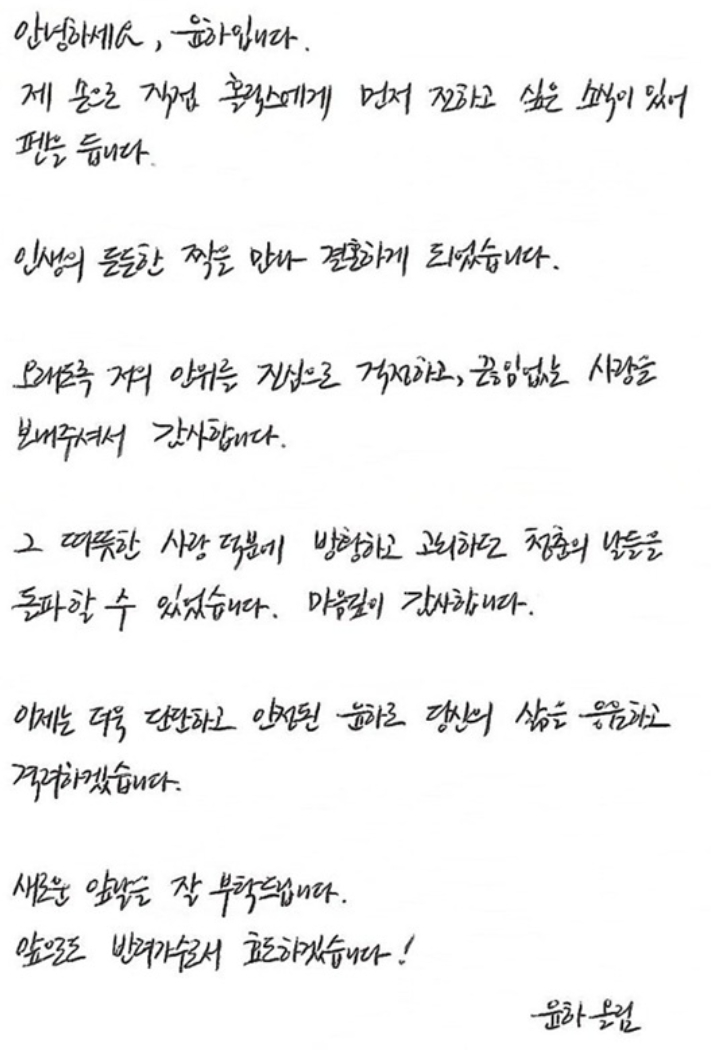 안녕하세요, 윤하입니다.
제 손으로 직접 홀릭스에게 먼저 전하고 싶은 소식이 있어
펜을 듭니다.
인생의 든든한 짝을 만나 결혼하게 되었습니다.
오래도록 저의 안위를 진심으로 걱정하고, 끊임없는 사랑을
보내주셔서 감사합니다.
그 따뜻한 사랑 덕분에 방황하고 고뇌하던 청춘의 날들을
돌파할 수 있었습니다. 마음깊이 감사합니다.
이제는 더욱 단단하고 안정된 윤하로 당신의 삶을 응원하고
격려하겠습니다.
새로운 앞날을 잘 부탁드립니다.
앞으로도 반려가수로서 효도하겠습니다!
윤하 올림